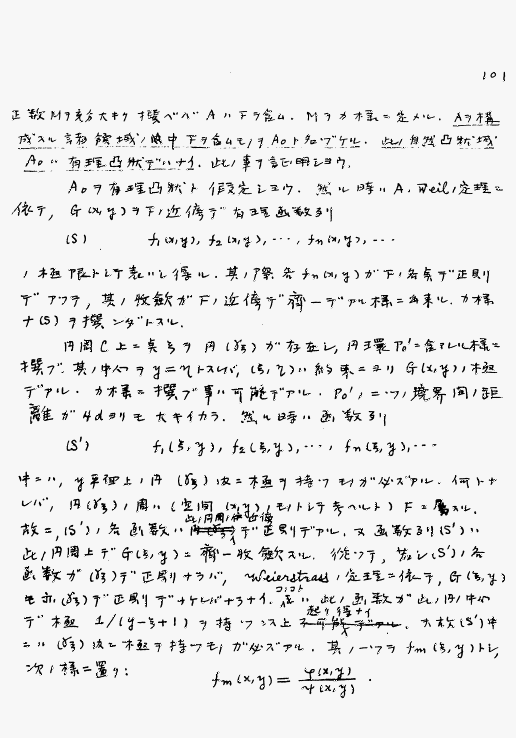 101
正数Mヲ充分大キク撰ベバ A ハ Fヲ含ム. Mヲカ様ニ定メル. Aヲ構
成スル諸領域ノ中 Fヲ含ムモノヲ A₀ト名ヅケル. 此ノ自然凸状域
A₀ハ有理凸状デハナイ. 此ノ事ヲ証明シヨウ.
A₀ヲ有理凸状ト仮定シヨウ. 然ル時ハ A. Weilノ定理ニ
依テ, G(x,y)ヲFノ近傍デ有理函数列
(S) f₁(x,y), f₂(x,y), ..., fn(x,y), ...
ノ極限トシテ表ハシ得ル. 其ノ際各fn(x,y)ガFノ各点デ正則
デアツテ, 其ノ収斂ガFノ近傍デ齊一デアル様ニ出来ル. カ様
ナ(S)ヲ撰ンダトスル.
円周C上ニ点ξヲ円(γξ)ガ存在シ, 円環P₀'ニ含マレル様ニ
撰ブ. 其ノ中心ヲy=ηトスレバ, (ξ,η)ハ約束ニヨリG(x,y)ノ極
デアル. カ様ニ撰ブ事ハ可能デアル. P₀'ノ二ツノ境界間ノ距
離ガ4dヨリモ大キイカラ. 然ル時ハ函数列
(S') f₁(ξ,y), f₂(ξ,y), ..., fn(ξ,y), ...
中ニハ, y平面上ノ円(γξ)内ニ極ヲ持ツモノガ必ズアル. 何トナ
レバ, 円(γξ)ノ周ハ(空間(x,y)ノモノトシテ考ヘルト)Fニ属スル.
故ニ, (S')ノ各函数ハ此ノ円周ノ近傍デ正則デアル. 又函数列(S')ハ
此ノ円周上デG(ξ,y)ニ齊一収斂スル. 從ツテ, 若シ(S')ノ各
函数ガ(γξ)デ正則ナラバ, Weierstrassノ定理ニ依テ, G(ξ,y)
モ亦(γξ)デ正則デナケレバナラナイ. コトハ此ノ函数ガ此ノ円ノ中心
デ極 1/(y-ξ+1) ヲ持ツ以上起リ得ナイ. 故(S')中
ニハ(γξ)内ニ極ヲ持ツモノガ必ズアル. 其ノ一ツヲfm(ξ,y)トシ,
次ノ様ニ置ク:
fm(x,y) = φ(x,y)/ψ(x,y) .